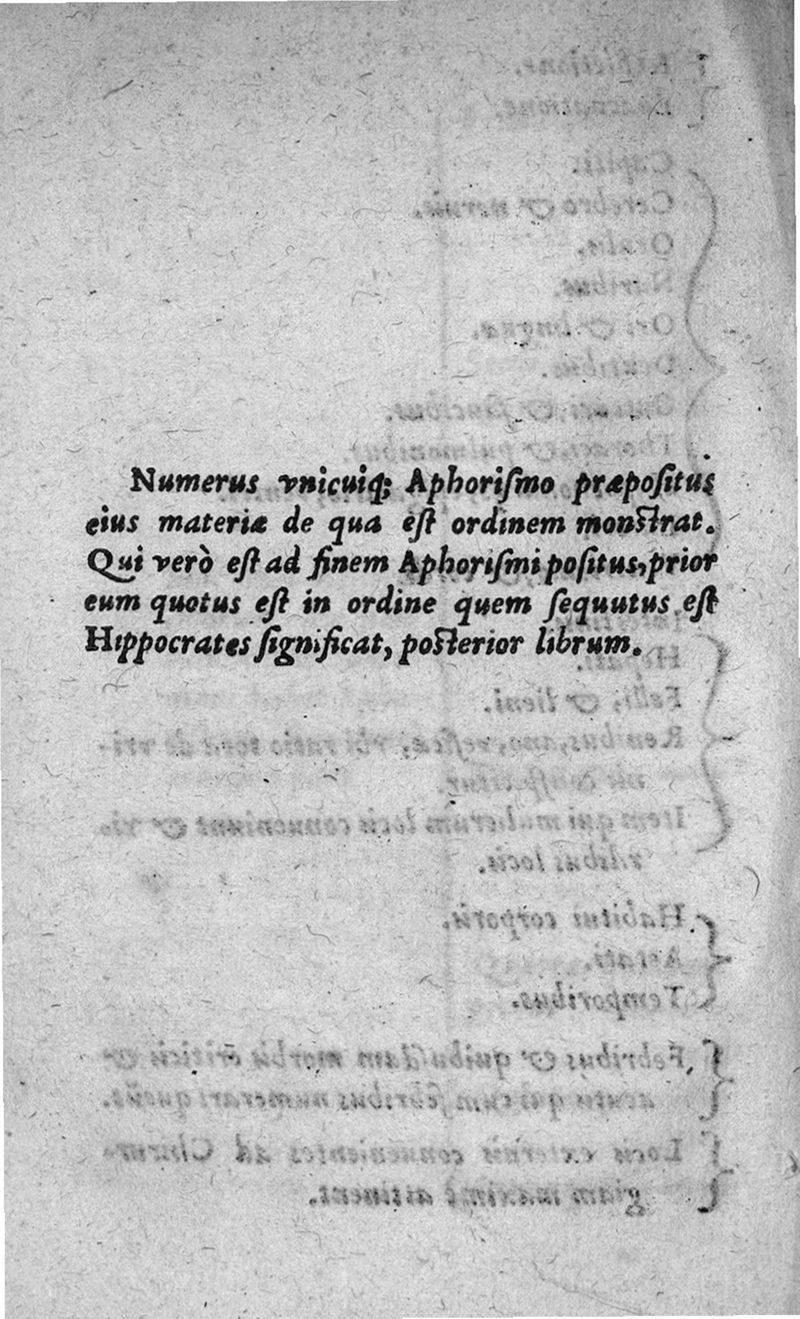 Numerus vnicuiq; Aphoriſmo præpoſitus
eius materiæ de qua eſt ordinem monſtrat.
Qui verò eſt ad finem Aphoriſmi poſitus, prior
eum quotus eſt in ordine quem ſequutus eſt
Hippocrates ſignificat, poſterior librum.